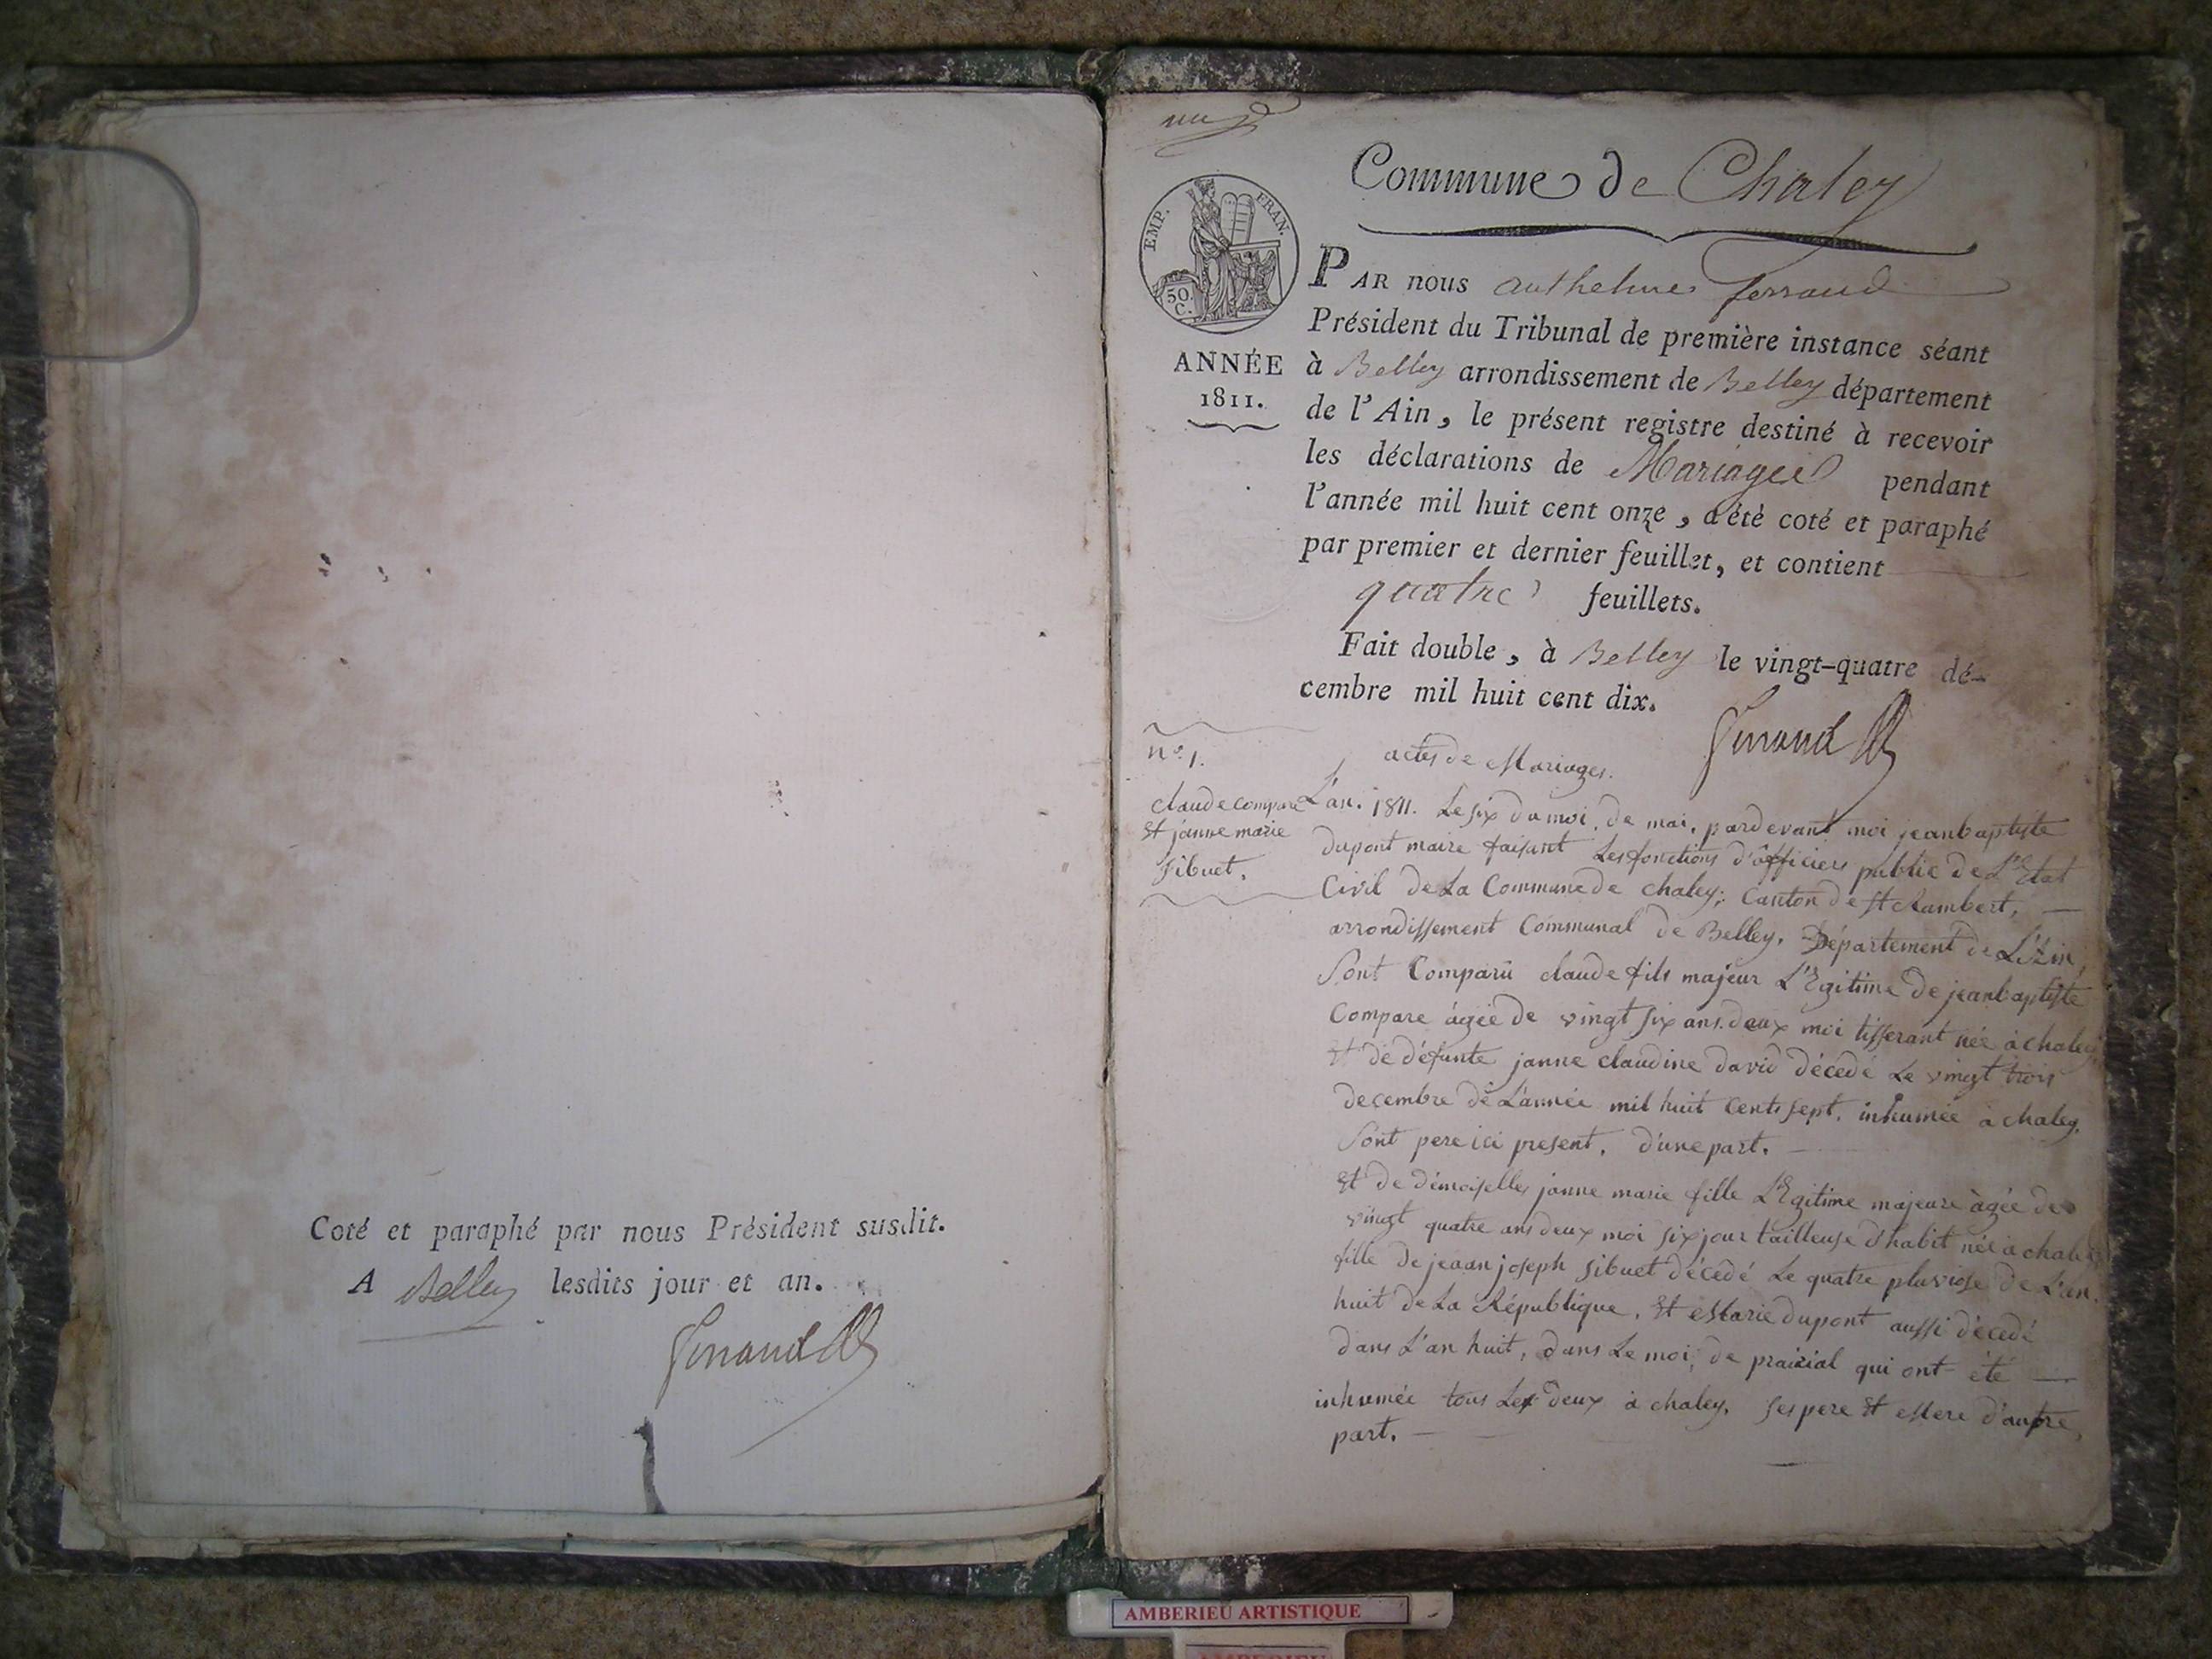 Coté et paraphé par nous Président susdit.
A Belley lesdits jour et an.
Ferrand
Commune de Chaley
EMP. FRAN.
50.
C.
ANNÉE
1811.
PAR nous anthelme ferrand
Président du Tribunal de première instance séant
à Belley arrondissement de Belley département
de l'Ain, le présent registre destiné à recevoir
les déclarations de Mariages pendant
l'année mil huit cent onze, a été coté et paraphé
par premier et dernier feuillet, et contient
quatre feuillets.
Fait double, à Belley le vingt-quatre dé-
cembre mil huit cent dix.
Ferrand
n.o 1.
claude compare
Et janne marie
Sibuet.
actes de Mariages.
L'an. 1811. Le six du moi. de mai, pardevant moi jeanbaptiste
dupont maire faisant Les fonctions d'officiers public de L'Etat
Civil de La Commune de chaley; Canton de st Rambert,
arrondissement Communal de Belley. Département de L'Ain,
Sont Comparü claude fils majeur L'Egitime de jeanbaptiste
Compare àgée de vingt six ans deux moi tisserant née à chaley,
Et de défunte janne claudine david décedé Le vingt trois
decembre de L'année mil huit cents sept. inhumée à chaley.
Sont pere ici present. d'une part.
Et de démoiselles janne marie fille L'Egitime majeure àgée de
vingt quatre ans deux moi six jour tailleuse d'habit née à chaley
fille de jeaan joseph sibuet décedé Le quatre pluviose de L'an
huit de La République, Et Marie dupont aussi décedé
dans L'an huit, dans Le moi, de prairial qui ont été
inhumée tous Les deux à chaley, ses pere Et Mere d'autre
part.
AMBERIEU ARTISTIQUE
AMBERIEU